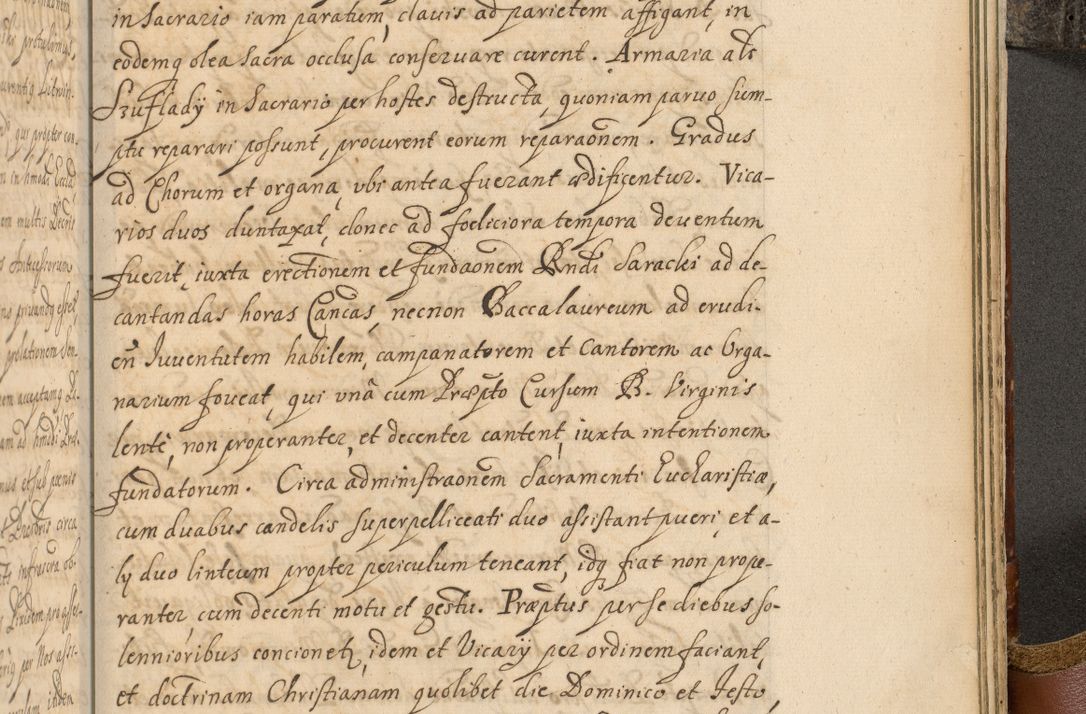 in Sacrario iam paratum, clauis ad parietem affigant, in
eodemq olea sacra occlusa conseruare curent. Armaria als
Szuflady in Sacrario per hostes destructa, quoniam paruo sum-
ptu reparari possunt, procurent eorum reparaonem. Gradus
ad Chorum et organa, vbi antea fuerant ædificentur. Vica-
rios duos duntaxat, donec ad foeliciora tempora deuentum
fuerit, iuxta erectionem et fundaonem Rndi Saracki ad de-
cantandas horas Cancas, necnon Baccalaureum ad erudi-
en Iuuentutem habilem, campanatorem et Cantorem ac Orga-
narium foueat, qui vna cum Præpto Cursum B. Virginis
lente, non properanter, et decenter cantent, iuxta intentionem
fundatorum. Circa administraonem Sacramenti Eucharistiæ,
cum duabus candelis superpelliceati duo assistant pueri, et a-
ly duo linteum propter periculum teneant, idq fiat non prope-
ranter cum decenti motu et gestu. Præptus per se diebus so-
lennioribus concionetz, idem et Vicary per ordinem faciant,
et doctrinam Christianam quolibet die Dominico et festo,